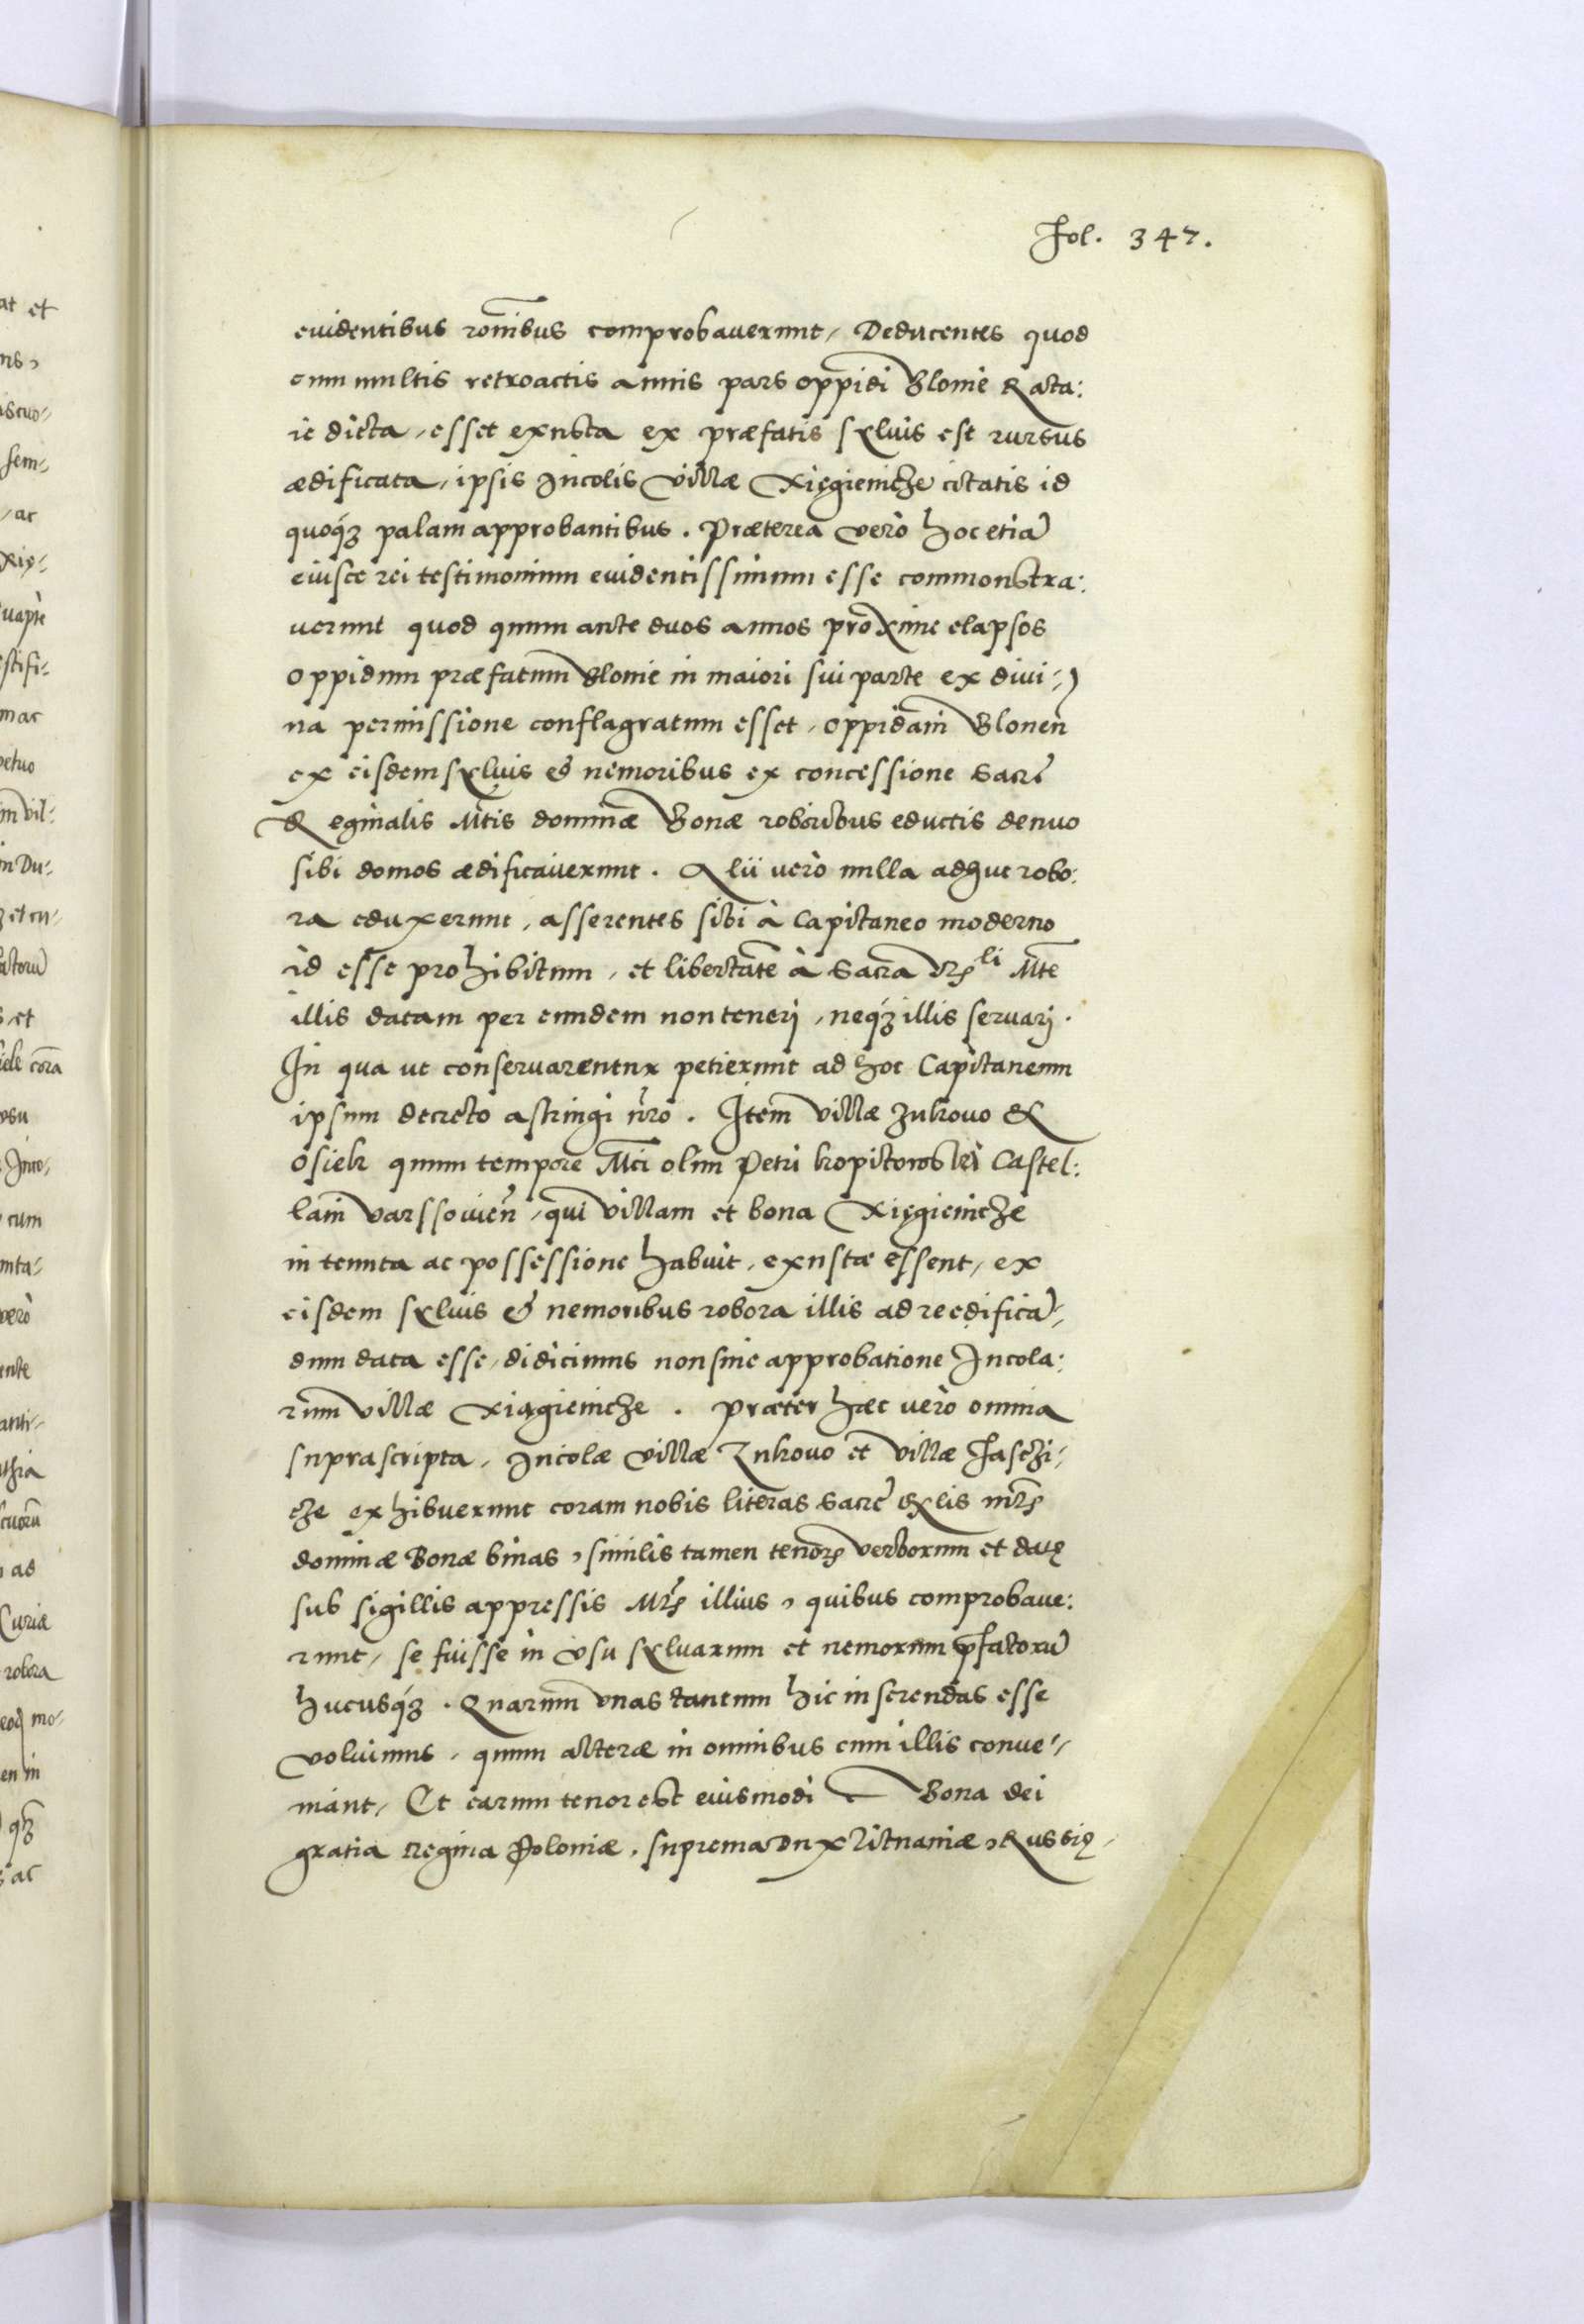 Fol. 347.
euidentibus rōnibus comprobauerunt, Deducentes quod
cum multis retroactis annis pars oppidi Blonie Rata:
ie dicta, esset exusta ex præfatis syluis est rursus
ædificata, ipsis Incolis Villæ Xięgienicze citatis id
quoqȝ palam approbantibus. Præterea verò hoc etiā
eiusce rei testimonium euidentissimum esse commonstra:
uerunt quod quum ante duos annos proxime elapsos
oppidum præfatum Blonie in maiori sui parte ex diui-
na permissione conflagratum esset, oppidani Blonen̄
ex eisdem syluis & nemoribus ex concessione Sacrę
Reginalis Mtis dominæ Bonæ roboribus eductis denuo
sibi domos ædificauerunt. Alii uerò nulla adhuc robo:
ra eduxerunt, asserentes sibi à Capitaneo moderno
id esse prohibitum, et libertatē à Sacra Rli Mte
illis datam per eundem non teneri, neqȝ illis seruari.
In qua ut conseruarentur petierunt ad hoc Capitaneum
ipsum decreto astringi nr̄o. Item villæ Zukouo &
Osiek quum tempore Mci olim Petri Kopitowski Castel:
lani Varssouien̄, qui villam et bona Xięgienicze
in tenuta ac possessione habuit, exustæ essent, ex
eisdem syluis & nemoribus robora illis ad reędificā-
dum data esse, didicimus non sine approbatione Incola:
rum villæ Xięgienicze. Præter hæc uerò omnia
suprascripta, Incolæ Villæ Zukouo et villæ Faszczi-
cze exhibuerunt coram nobis literas Sacrę Rlis Mtis
dominæ Bonæ binas, similis tamen tenoris verborum et datę
sub sigillis appressis Mtis illius, quibus comprobaue:
runt, se fuisse in vsu syluarum et nemorum p̄fatorū
hucusqȝ. Quarum vnas tantum hic inserendas esse
voluimus, quum alteræ in omnibus cum illis conue-
niant, Et earum tenor est eiusmodi Bona Dei
gratia Regina Poloniæ, suprema Dux Lituaniæ, Russię,